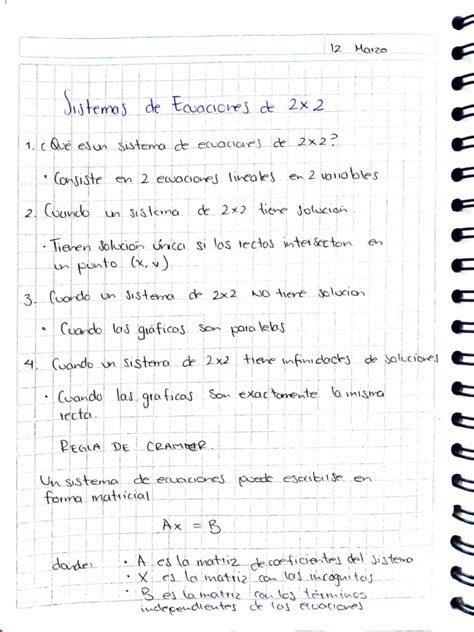 12 Marzo
Sistemas de Ecuaciones de 2x2
1. ¿Qué es un sistema de ecuaciones de 2x2?
• Consiste en 2 ecuaciones lineales en 2 variables
2. Cuando un sistema de 2x2 tiene solución
• Tienen solución única si las rectas intersectan en
un punto (x,y)
3. Cuando un sistema de 2x2 NO tiene solucion
• Cuando las gráficas son paralelas
4. Cuando un sistema de 2x2 tiene infinidades de soluciones
• Cuando las graficas son exactamente la misma
recta.
REGLA DE CRAMER.
Un sistema de ecuaciones puede escribirse en
forma matricial
Ax = B
donde: • A es la matriz de coeficientes del sistema
• X es la matriz con las incognitas
• B es la matriz con los términos
independientes de las ecuaciones